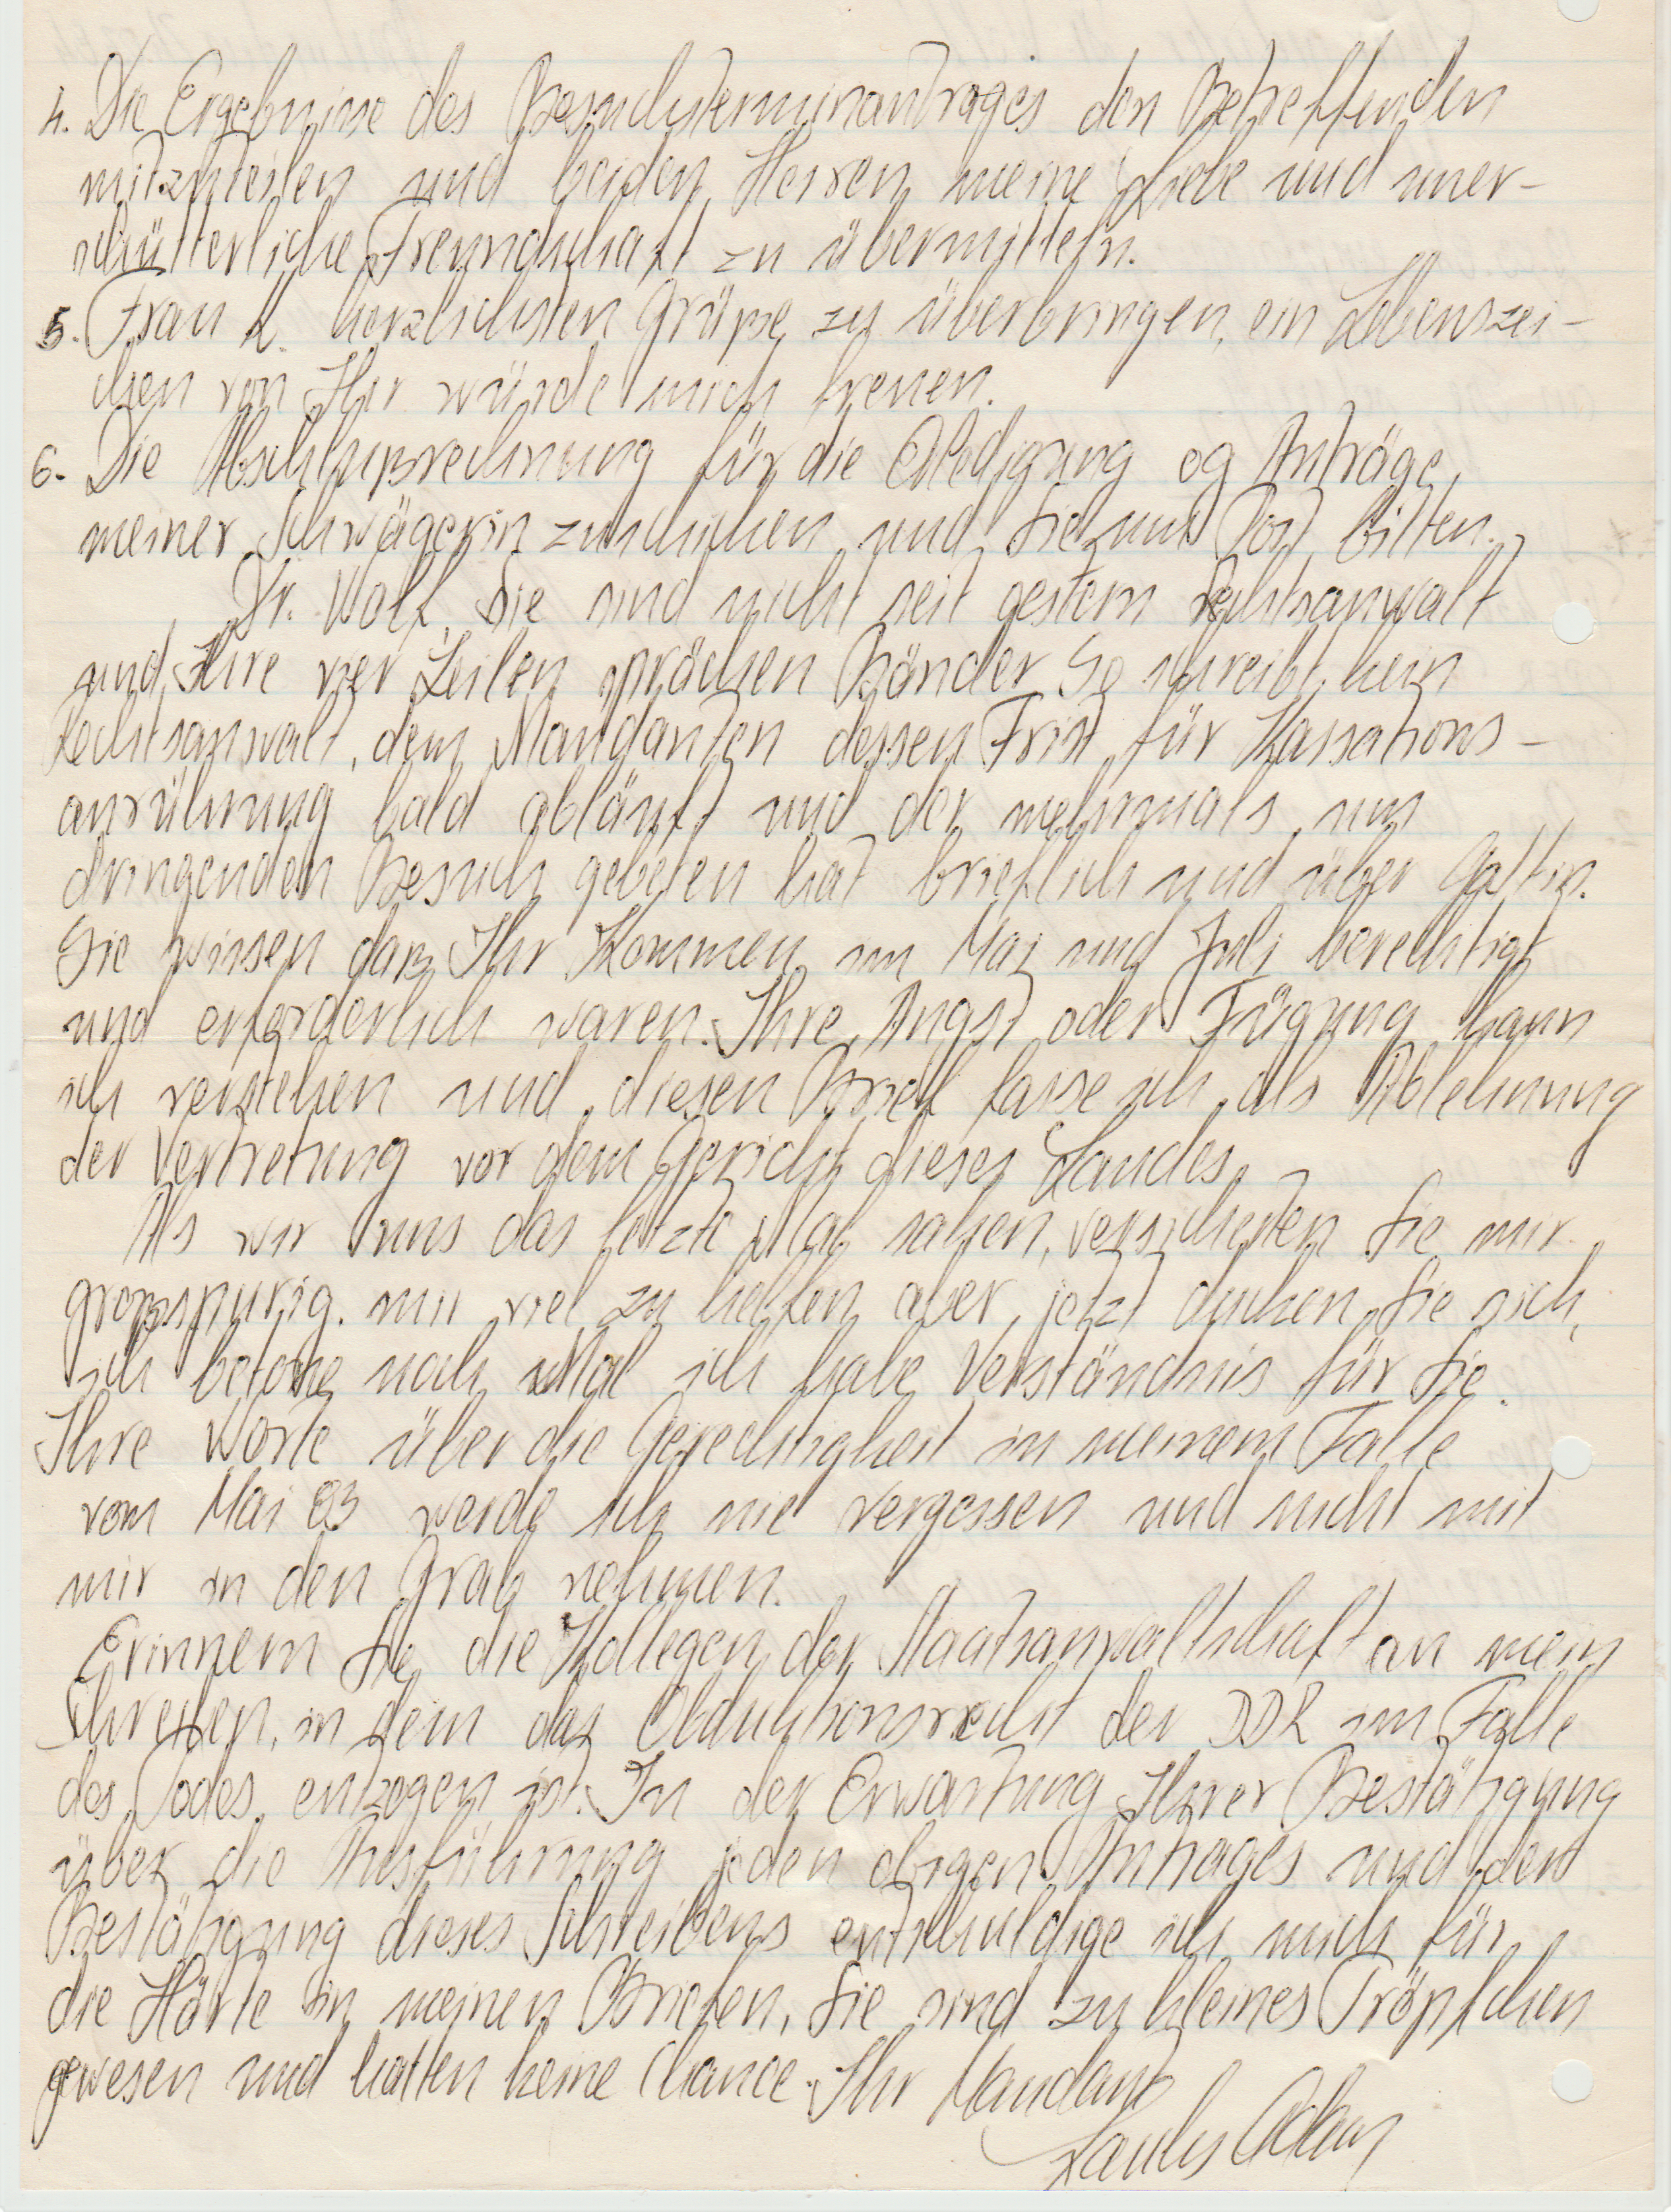 4. Die Ergebnisse des Besuchsterminantrages den Betreffenden
mitzuteilen und beiden Herren meine Liebe und uner-
schütterliche Freundschaft zu übermitteln.
5. Frau L. herzlichsten Grüße zu überbringen, ein Lebenszei-
chen von Ihr würde mich freuen.
6. Die Abschlußrechnung für die Erledigung og Anträge
meiner Schwägerin zuschicken und Sie um Post bitten.
Dr. Wolf, Sie sind nicht seit gestern Rechtsanwalt
und Ihre vier Zeilen sprächen Bänder. So schreibt kein
Rechtsanwalt, dem Mandanten dessen Frist für Kassations-
anrührung bald abläuft und der mehrmals um
dringenden Besuch gebeten hat brieflich und über Gattin.
Sie wissen daß Ihr Kommen im Mai und Juli berechtigt
und erforderlich waren. Ihre Angst oder Fügung kann
ich verstehen und diesen Brief fasse ich als Ablehnung
der Vertretung vor dem Gericht dieses Landes.
Als wir uns das letzte Mal sahen, versicherten Sie mir
großspurig, mir viel zu helfen aber jetzt ducken Sie sich,
ich betone noch Mal ich habe Verständnis für Sie.
Ihre Worte über die Gerechtigkeit in meinem Falle
vom Mai 83 werde ich nie vergessen und nicht mit
mir in den Grab nehmen.
Erinnern Sie die Kollegen der Staatsanwaltschaft an mein
Schreiben, in dem das Obduktionsrecht der DDR im Falle
des Todes entzogen ist. In der Erwartung Ihrer Bestätigung
über die Ausführung jeden obigen Antrages und der
Bestätigung dieses Schreibens entschuldige ich mich für
die Härte in meinen Briefen, Sie sind zu kleines Tröpfchen
gewesen und hatten keine Chance. Ihr Mandant